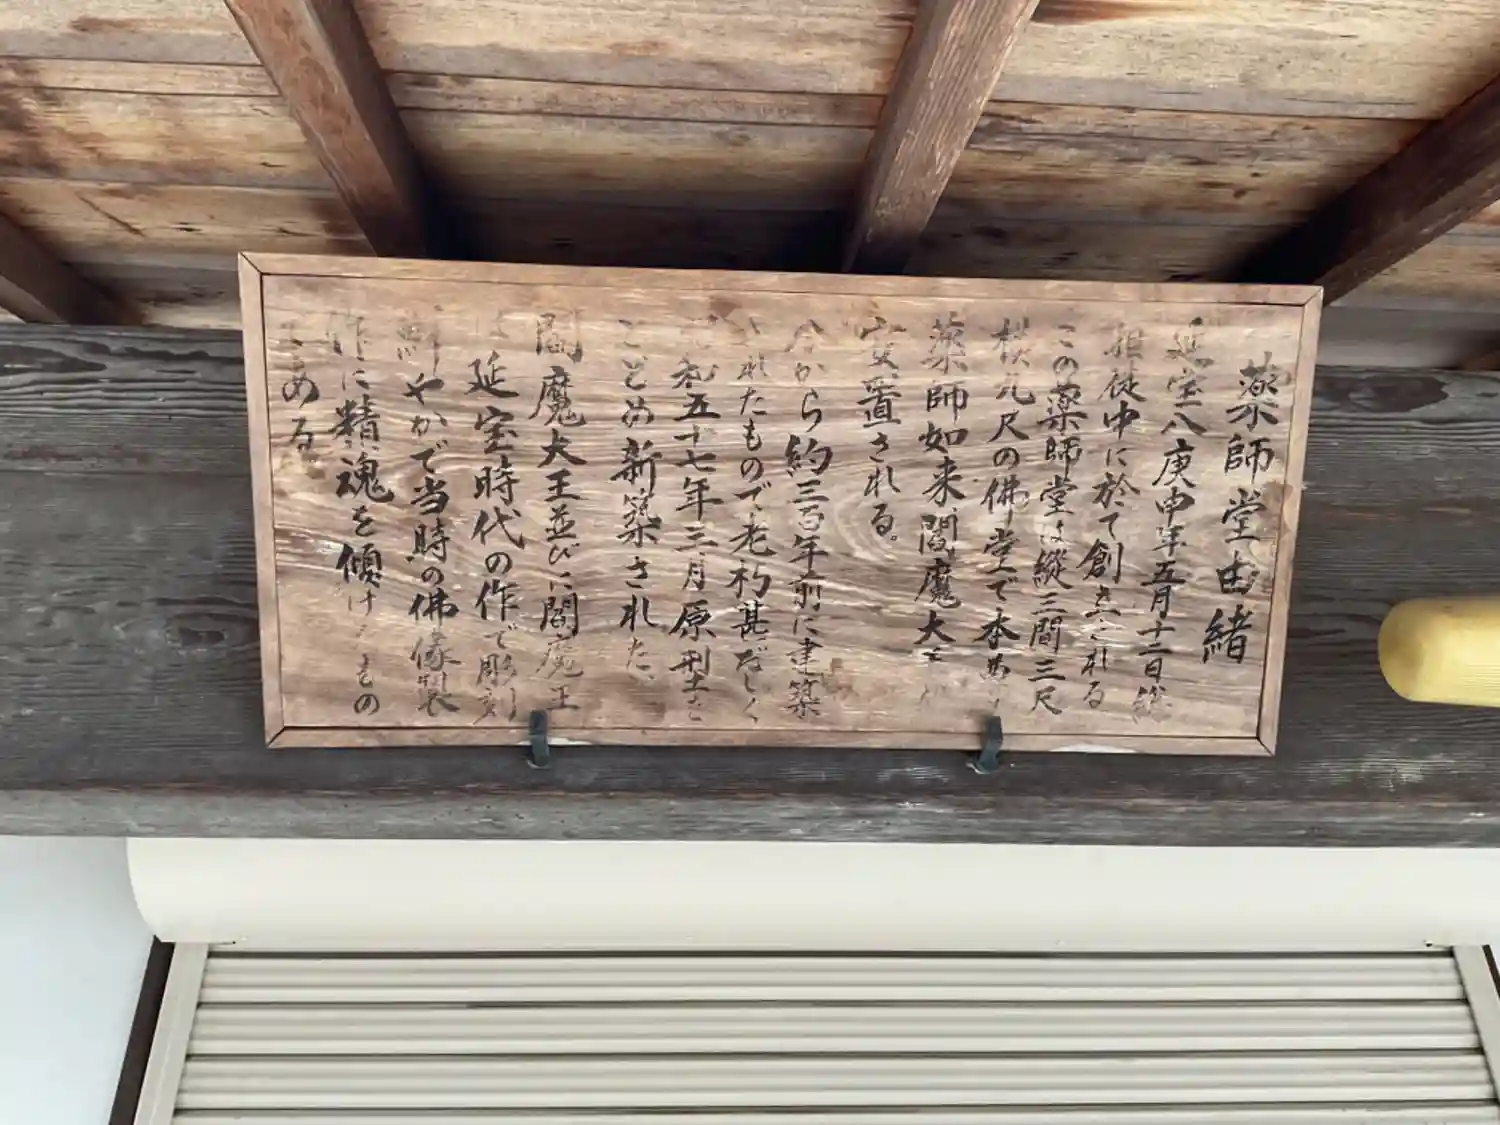 薬師堂由緒
延宝八庚申年五月十二日総
担徒中に於て創立される
この薬師堂は縦三間三尺
横九尺の佛堂で本尊
薬師如来閻魔大王
安置される。
今から約三百年前に建築
されたもので老朽甚だしく
和五十七年三月原型を
とどめ新築された、
閻魔大王並びに閻魔王
は延宝時代の作で彫刻
鮮やかで当時の佛像製
作に精魂を傾けたもの
である